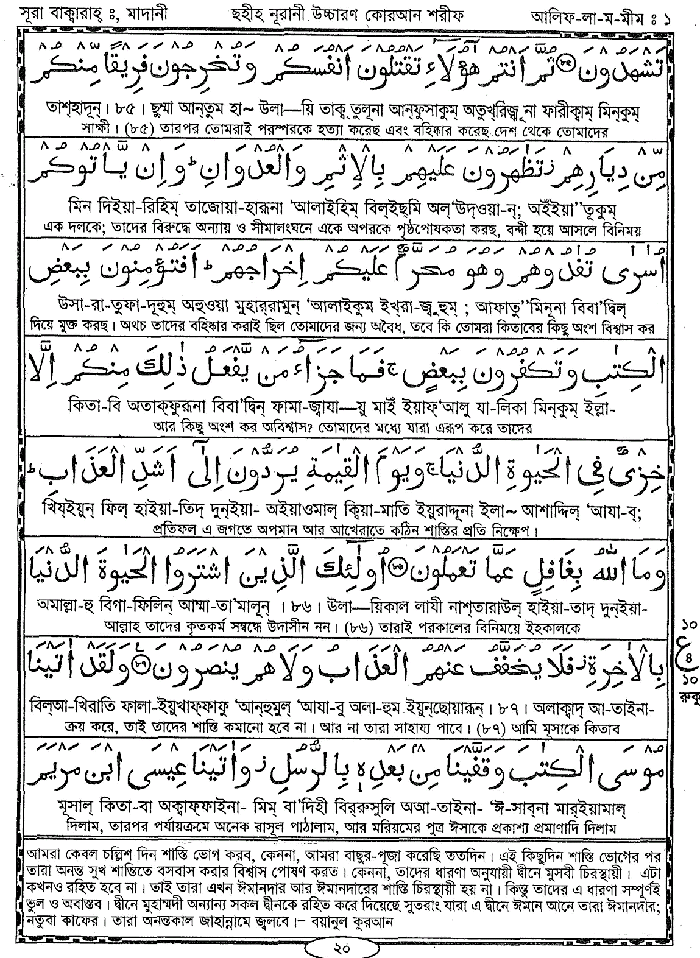 সূরা বাক্বারাহ্ ঃ, মাদানী ছহীহ্ নূরানী উচ্চারণ কোরআন শরীফ আলিফ-লা-ম-মীম ঃ ১
تَشْهَدُونَ ﴿٨٤﴾ ثُمَّ أَنْتُمْ هٰؤُلَاءِ تَقْتُلُونَ أَنْفُسَكُمْ وَتُخْرِجُونَ فَرِيقًا مِنْكُمْ
তাশ্হাদূন্। ৮৫। ছুম্মা আন্তুম হা~ উলা—য়ি তাক্ তুলূনা আন্ফুসাকুম্ অতুখ্রিজূ না ফারীক্বাম্ মিন্কুম্
সাক্ষী। (৮৫) তারপর তোমরাই পরস্পরকে হত্যা করেছ এবং বহিষ্কার করেছ দেশ থেকে তোমাদের
مِنْ دِيَارِهِمْ تَظٰهَرُونَ عَلَيْهِمْ بِالْإِثْمِ وَالْعُدْوَانِ ط وَإِنْ يَأْتُوكُمْ
মিন দিইয়া-রিহিম্ তাজোয়া-হারূনা ‘আলাইহিম্ বিল্ইছ্মি অল্‘উদ্ওয়া-ন্; অইঁইয়া”তূকুম্
এক দলকে; তাদের বিরুদ্ধে অন্যায় ও সীমালংঘনে একে অপরকে পৃষ্ঠপোষকতা করছ, বন্দী হয়ে আসলে বিনিময়
أُسٰرٰى تُفٰدُوهُمْ وَهُوَ مُحَرَّمٌ عَلَيْكُمْ إِخْرَاجُهُمْ ط أَفَتُؤْمِنُونَ بِبَعْضِ
উসা-রা-তুফা-দূহুম্ অহুওয়া মুহার্রামুন্ ‘আলাইকুম ইখ্রা-জুহুম্; আফাতু”মিনূনা বিবা’দ্বিল্
দিয়ে মুক্ত করছ। অথচ তাদের বহিষ্কার করাই ছিল তোমাদের জন্য অবৈধ, তবে কি তোমরা কিতাবের কিছু অংশ বিশ্বাস কর
الْكِتٰبِ وَتَكْفُرُونَ بِبَعْضٍ ج فَمَا جَزَاءُ مَنْ يَفْعَلُ ذٰلِكَ مِنْكُمْ إِلَّا
কিতা-বি অতাক্ফুরূনা বিবা’দ্বিন্ ফামা-জ্বাযা—য়ু মাইঁ ইয়াফ্‘আলু যা-লিকা মিন্কুম্ ইল্লা-
আর কিছু অংশ কর অবিশ্বাস? তোমাদের মধ্যে যারা এরূপ করে তাদের
خِزْىٌ فِى الْحَيٰوةِ الدُّنْيَا ج وَيَوْمَ الْقِيٰمَةِ يُرَدُّونَ إِلٰى أَشَدِّ الْعَذَابِ ط
খিয্ইয়ুন্ ফিল্ হাইয়া-তিদ্ দুন্ইয়া- অইয়াওমাল্ ক্বিয়া-মাতি ইয়ুরাদ্দূনা ইলা~ আশাদ্দিল্ ‘আযা-ব্;
প্রতিফল এ জগতে অপমান আর আখেরাতে কঠিন শাস্তির প্রতি নিক্ষেপ।
وَمَا اللّٰهُ بِغَافِلٍ عَمَّا تَعْمَلُونَ ﴿٨٥﴾ أُولٰئِكَ الَّذِينَ اشْتَرَوُا الْحَيٰوةَ الدُّنْيَا
অমাল্লা-হু বিগা-ফিলিন্ আম্মা-তা’মালূন্। ৮৬। উলা—য়িকাল্ লাযী নাশ্তারাউল্ হাইয়া-তাদ্ দুন্ইয়া-
আল্লাহ্ তাদের কৃতকর্ম সম্বন্ধে উদাসীন নন। (৮৬) তারাই পরকালের বিনিময়ে ইহকালকে
بِالْاٰخِرَةِ ز فَلَا يُخَفَّفُ عَنْهُمُ الْعَذَابُ وَلَا هُمْ يُنْصَرُونَ ﴿٨٦﴾ وَلَقَدْ اٰتَيْنَا
বিল্আ-খিরাতি ফালা-ইয়ুখাফ্ফাফু ‘আন্হুমুল্ ‘আযা-বু অলা-হুম্ ইয়ুন্ছোয়ারূন্। ৮৭। অলাক্বাদ্ আ-তাইনা-
ক্রয় করে, তাই তাদের শাস্তি কমানো হবে না। আর না তারা সাহায্য পাবে। (৮৭) আমি মূসাকে কিতাব
১০
ع
৪
১০
রুকূ
مُوسَى الْكِتٰبَ وَقَفَّيْنَا مِنْ بَعْدِهٖ بِالرُّسُلِ ز وَاٰتَيْنَا عِيسَى ابْنَ مَرْيَمَ
মূসাল্ কিতা-বা অক্বাফ্ফাইনা- মিম্ বা’দিহী বির্রুসুলি অআ-তাইনা- ‘ঈ-সাব্না মার্ইয়ামাল্
দিলাম, তারপর পর্যায়ক্রমে অনেক রাসূল পাঠালাম, আর মরিয়মের পুত্র ঈসাকে প্রকাশ্য প্রমাণাদি দিলাম
আমরা কেবল চল্লিশ দিন শাস্তি ভোগ করব, কেননা, আমরা বাছুর-পূজা করেছি ততদিন। এই কিছুদিন শাস্তি ভোগের পর
তারা অনন্ত সুখ শান্তিতে বসবাস করার বিশ্বাস পোষণ করত। কেননা, তাদের ধারণা অনুযায়ী দ্বীনে মুসবী চিরস্থায়ী। এটা
কখনও রহিত হবে না। তাই তারা এখন ঈমানদার আর ঈমানদারের শাস্তি চিরস্থায়ী হয় না। কিন্তু তাদের এ ধারণা সম্পূর্ণই
ভুল ও অবান্তব। দ্বীনে মুহাম্মদী অন্যান্য সকল দ্বীনকে রহিত করে দিয়েছে সুতরাং যারা এ দ্বীনে ঈমান আনে তারা ঈমানদার;
নতুবা কাফের। তারা অনন্তকাল জাহান্নামে জ্বলবে।– বয়ানুল কুরআন
২০